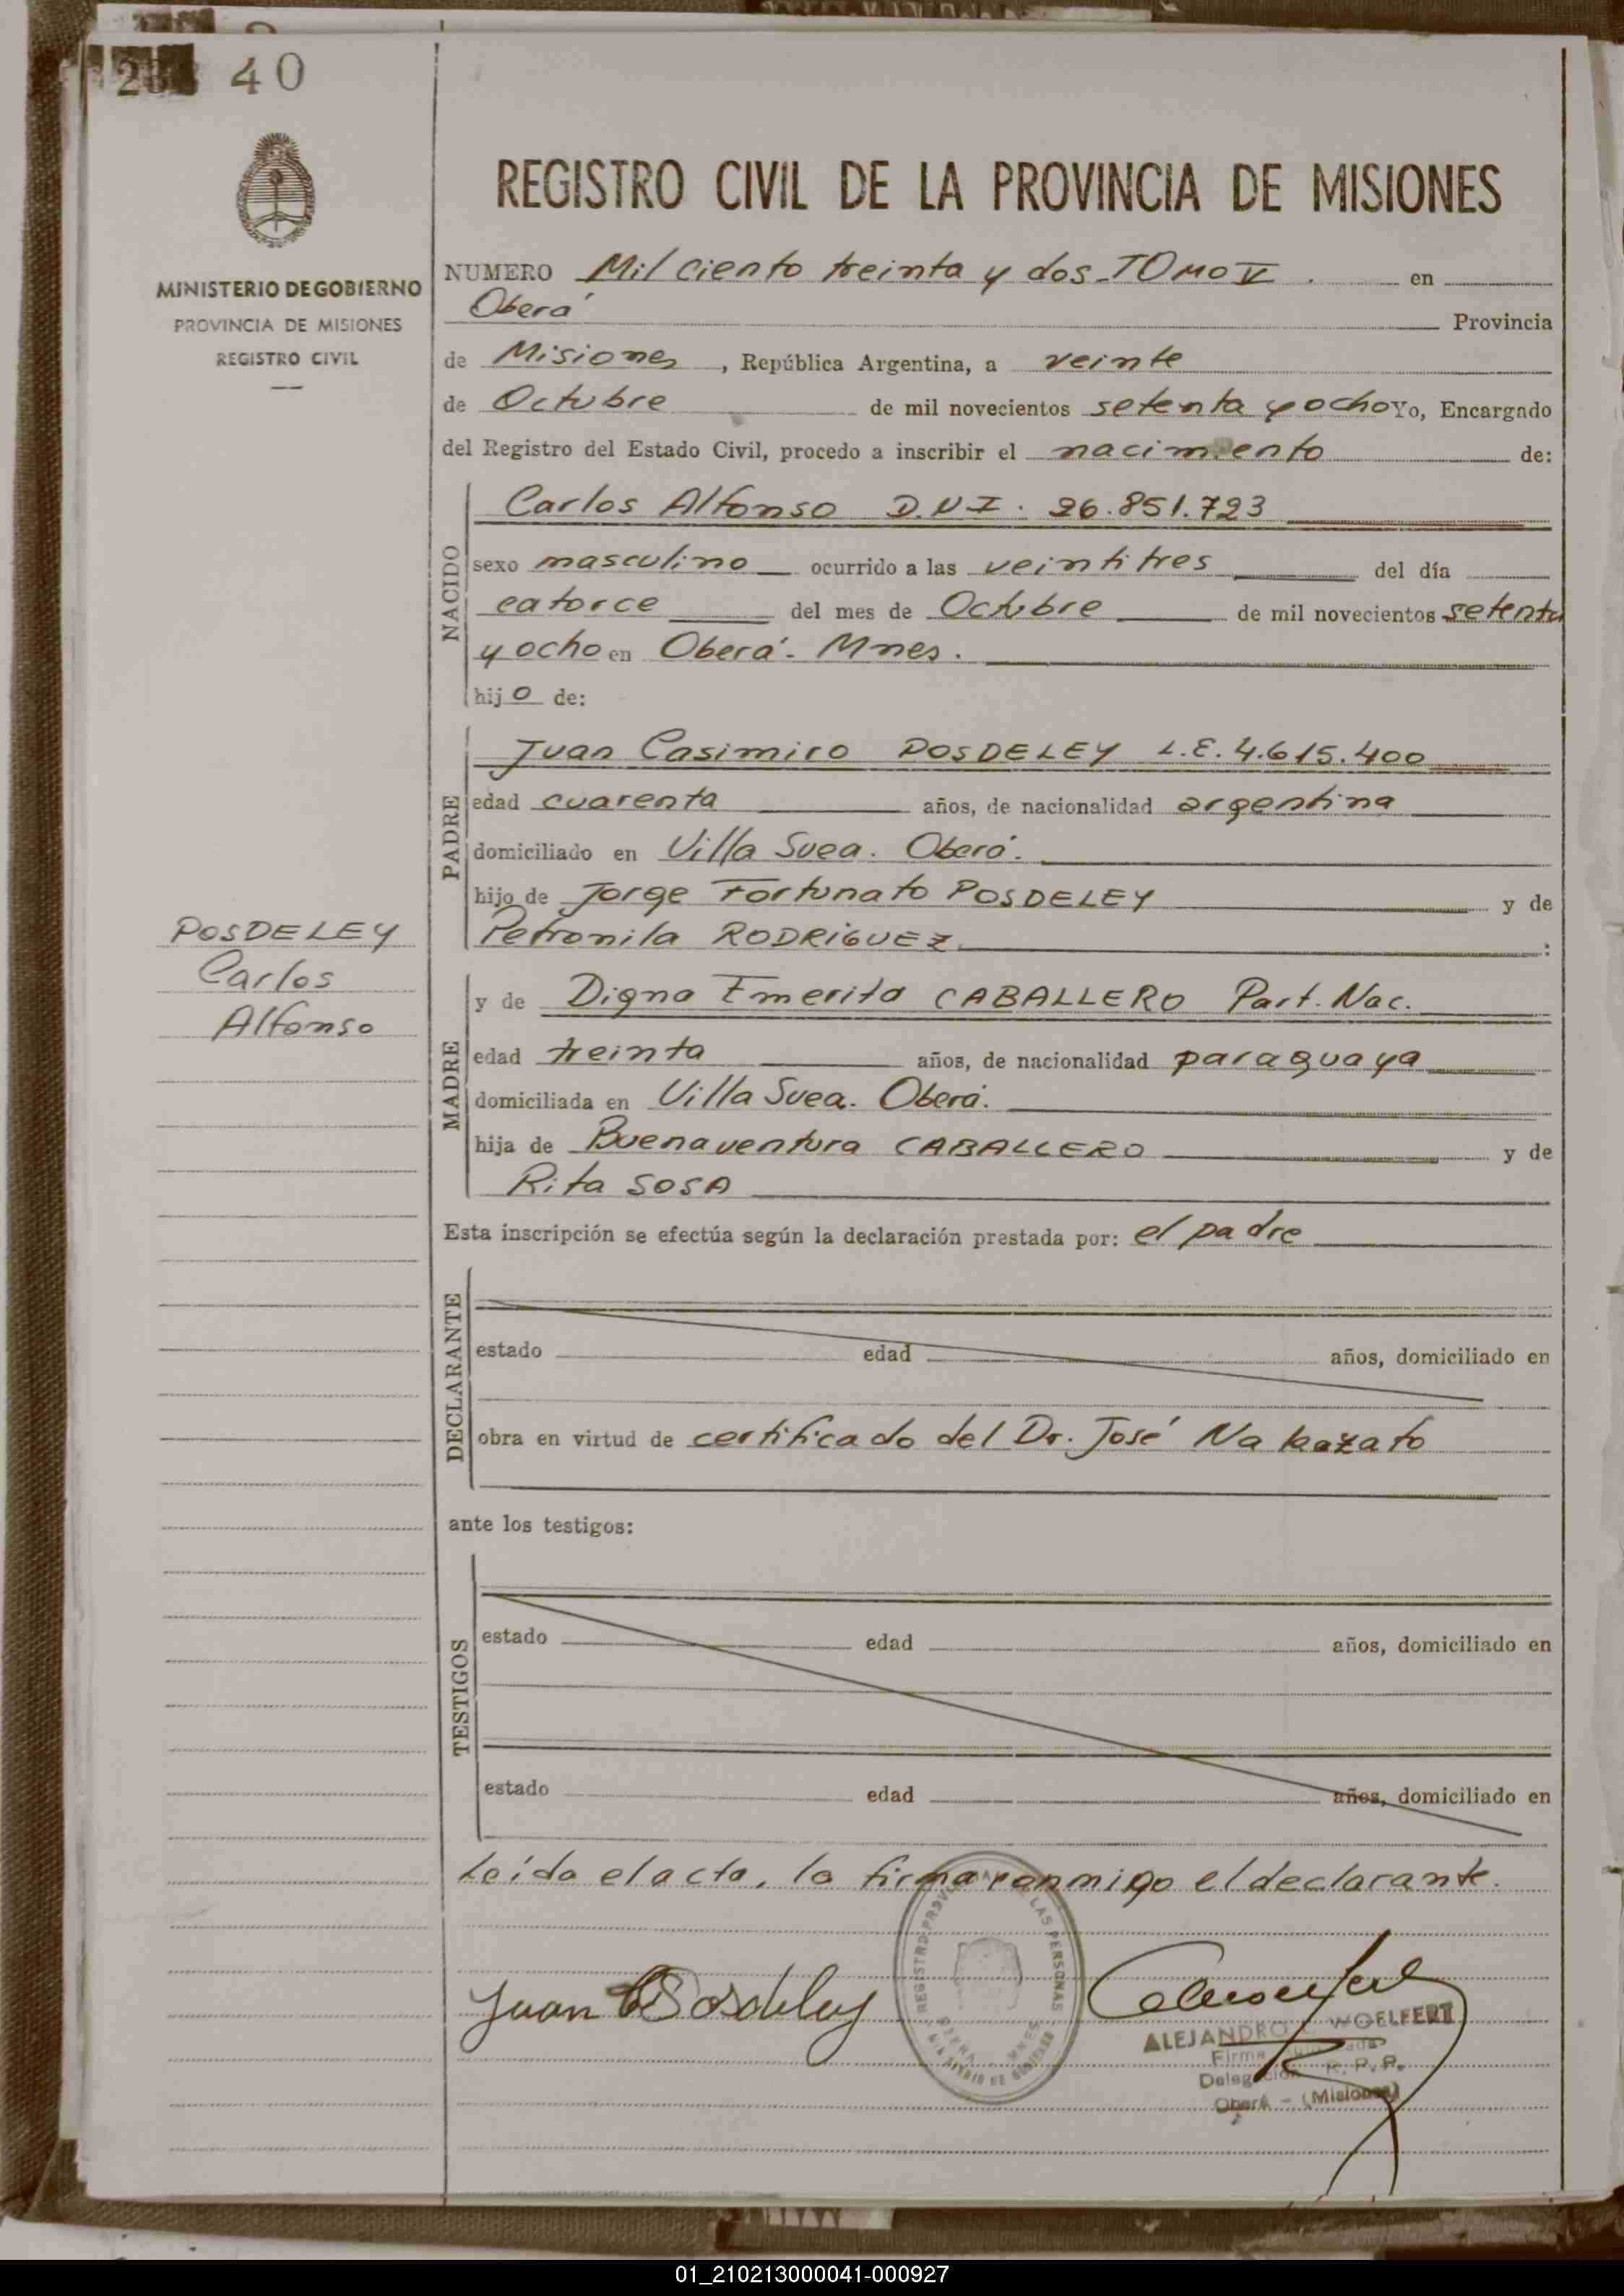 40
REGISTRO CIVIL DE LA PROVINCIA DE MISIONES
MINISTERIO DE GOBIERNO
PROVINCIA DE MISIONES
REGISTRO CIVIL
NUMERO Mil ciento treinta y dos - TOMO V. en
Oberá Provincia
de Misiones, República Argentina, a veinte
de Octubre de mil novecientos setenta y ocho Yo, Encargado
del Registro del Estado Civil, procedo a inscribir el nacimiento de:
NACIDO
Carlos Alfonso D.N.I. 26.851.723
sexo masculino ocurrido a las veintitres del día
catorce del mes de Octubre de mil novecientos setenta
y ocho en Oberá - Mnes.
hijo de:
PADRE
Juan Casimiro POSDELEY L.E. 4.615.400
edad cuarenta años, de nacionalidad argentina
domiciliado en Villa Svea. Oberá.
hijo de Jorge Fortunato POSDELEY y de
Petronila RODRIGUEZ :
POSDELEY
Carlos
Alfonso
MADRE
y de Digna Emerita CABALLERO Part. Nac.
edad treinta años, de nacionalidad paraguaya
domiciliada en Villa Svea. Oberá.
hija de Buenaventura CABALLERO y de
Rita SOSA
Esta inscripción se efectúa según la declaración prestada por: el padre
DECLARANTE
estado edad años, domiciliado en
obra en virtud de certificado del Dr. José Nakazato
ante los testigos:
TESTIGOS
estado edad años, domiciliado en
estado edad años, domiciliado en
Leída el acta, la firma conmigo el declarante.
Juan C Posdeley
REGISTRO LAS PERSONAS
ALEJANDRO WOELFERT
Firma
Delegación R. P. P.
Oberá - (Misiones)
01_210213000041-000927